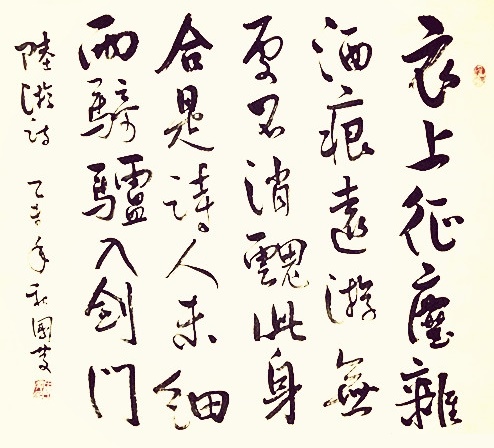 衣上征塵雜
酒痕遠游無
處不消魂此身
合是詩人未細
雨騎驢入劍門
陸游詩 乙 年 國